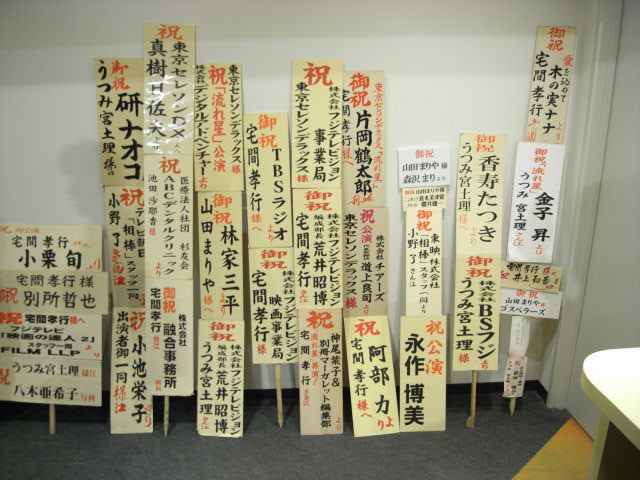 御祝
宅間孝行様
小栗 旬より
宅間孝行様
祝
別所哲也
祝
宅間孝行様へ
フジテレビ
「映画の達人2」
スタッフ
FILM LLP
うつみ宮土理様江
祝
八木亜希子より
御祝
研ナオコより
うつみ宮土理様江
テレビ朝日
「相棒」スタッフ一同より
小野了さん江
祝
小池栄子より
出演者御一同様江
祝
東京セレソンDXさんへ
真樹日佐夫より
医療法人社団 杉友会
ABCデンタルクリニック
池田沙耶香様
御祝
株式会社
融合事務所
宅間孝行様
東京セレソンデラックス様
祝「流れ星」公演
株式会社
デジタルアドベンチャーより
御祝
林家三平より
山田まりや様へ
御祝
株式会社フジテレビジョン
編成部長 荒井昭博より
うつみ宮土理さん江
御祝
TBSラジオより
宅間孝行様へ
御祝
株式会社フジテレビジョン
映画事業局より
宅間孝行様
祝
株式会社フジテレビジョン
事業局より
宅間孝行様へ
御祝
株式会社フジテレビジョン
編成部長 荒井昭博より
宅間孝行様
祝
神尾葉子&
別冊マーガレット編集部より
流れ星再演!
宅間孝行さん江
御祝
東京セレソンデラックス「流れ星」
片岡鶴太郎より
宅間孝行様へ
祝
公演
株式会社 チアーズ
道上良司より
東京セレソンデラックス様
祝
阿部 力より
宅間孝行様へ
御祝
山田まりや様
森沢まりより
御祝
山田まりや様へ
御祝
東映株式会社
「相棒」スタッフ一同より
小野了さん江
祝公演
永作博美
御祝
香寿たつきより
うつみ宮土理様
御祝
株式会社BSフジより
うつみ宮土理様
御祝
愛を込めて
木の実ナナより
宅間孝行様
御祝「流れ星」
金子 昇より
うつみ宮土理さん江
宅間孝行さん江
井上和香より
御祝
山田まりや様
ゴスペラーズ